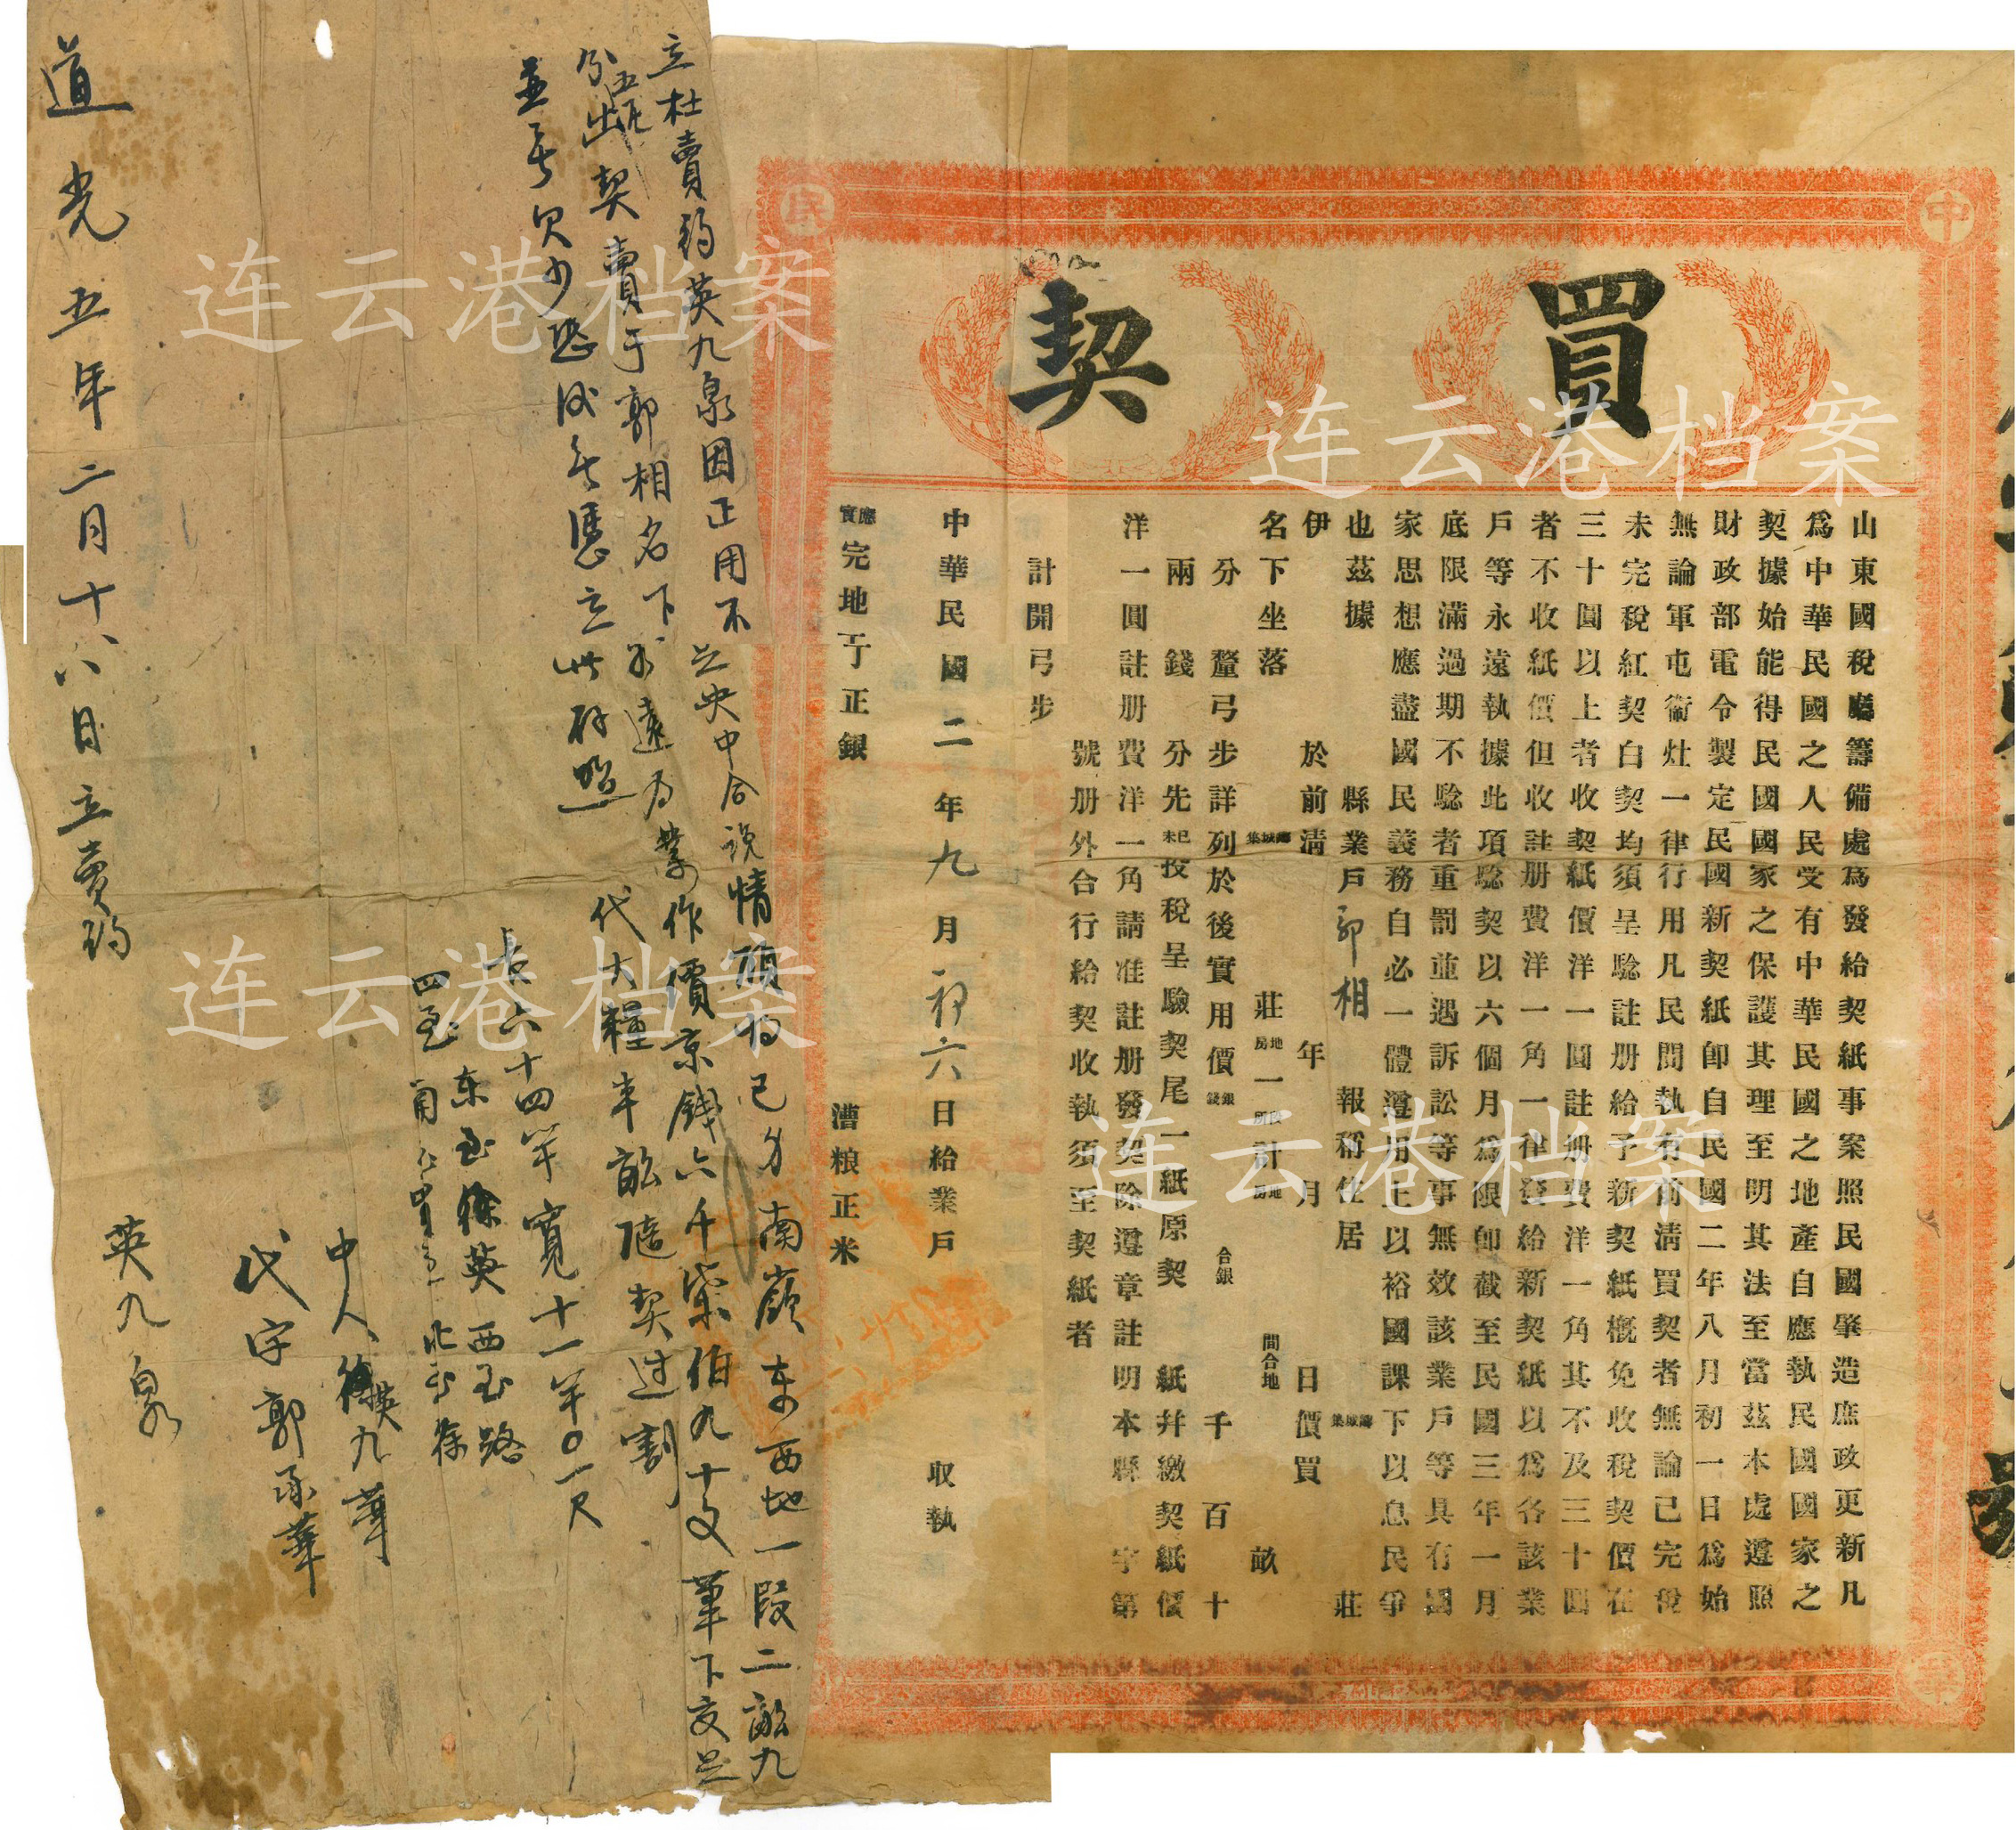 買契
中
民
華
山東國稅廳籌備處爲發給契紙事案照民國肇造庶政更新凡
爲中華民國之人民受有中華民國之地產自應執民國國家之
契據始能得民國國家之保護其理至明其法至當茲本處遵照
財政部電令製定民國新契紙卽自民國二年八月初一日爲始
無論軍屯衞灶一律行用凡民間執有前淸買契者無論已完稅
未完稅紅契白契均須呈驗註册給予新契紙槪免收稅契價在
三十圓以上者收契紙價洋一圓註册費洋一角其不及三十圓
者不收紙價但收註册費洋一角一律發給新契紙以爲各該業
戶等永遠執據此項驗契以六個月爲限卽截至民國三年一月
底限滿過期不驗者重罰並遇訴訟等事無效該業戶等具有國
家思想應盡國民義務自必一體遵用上以裕國課下以息民爭
也茲據 縣業戶郭相 報稱住居 鄉城集 莊
伊 於前淸 年 月 日價買
名下坐落 鄉城集 莊 地房 一 段所 計 地房 間合地 畝
分 釐弓步詳列於後實用價 銀錢 合銀 千 百 十
兩 錢 分先 已未 投稅呈驗契尾一紙原契 紙幷繳契紙價
洋一圓註册費洋一角請准註册發契除遵章註明本縣 字第
號册外合行給契收執須至契紙者
計開弓步
中華民國二年九月初六日給業戶 收執
應實完地丁正銀 漕粮正米
立杜賣約英九泉因正用不足央中合說情願將己分南嶺東西地一段二畝九
分五厘出契賣于郭相名下永遠爲業作價京錢六千柒伯九十文筆下交足
並無欠少恐後無憑立此存照 代大糧半畝隨契过割
長六十四竿寬十一竿〇一尺
四至 東至徐英 西至路
南至 北至徐
中人 徐英九華
代字郭承華
道光五年二月十六日立賣約 英九泉
连云港档案
连云港档案
连云港档案
连云港档案